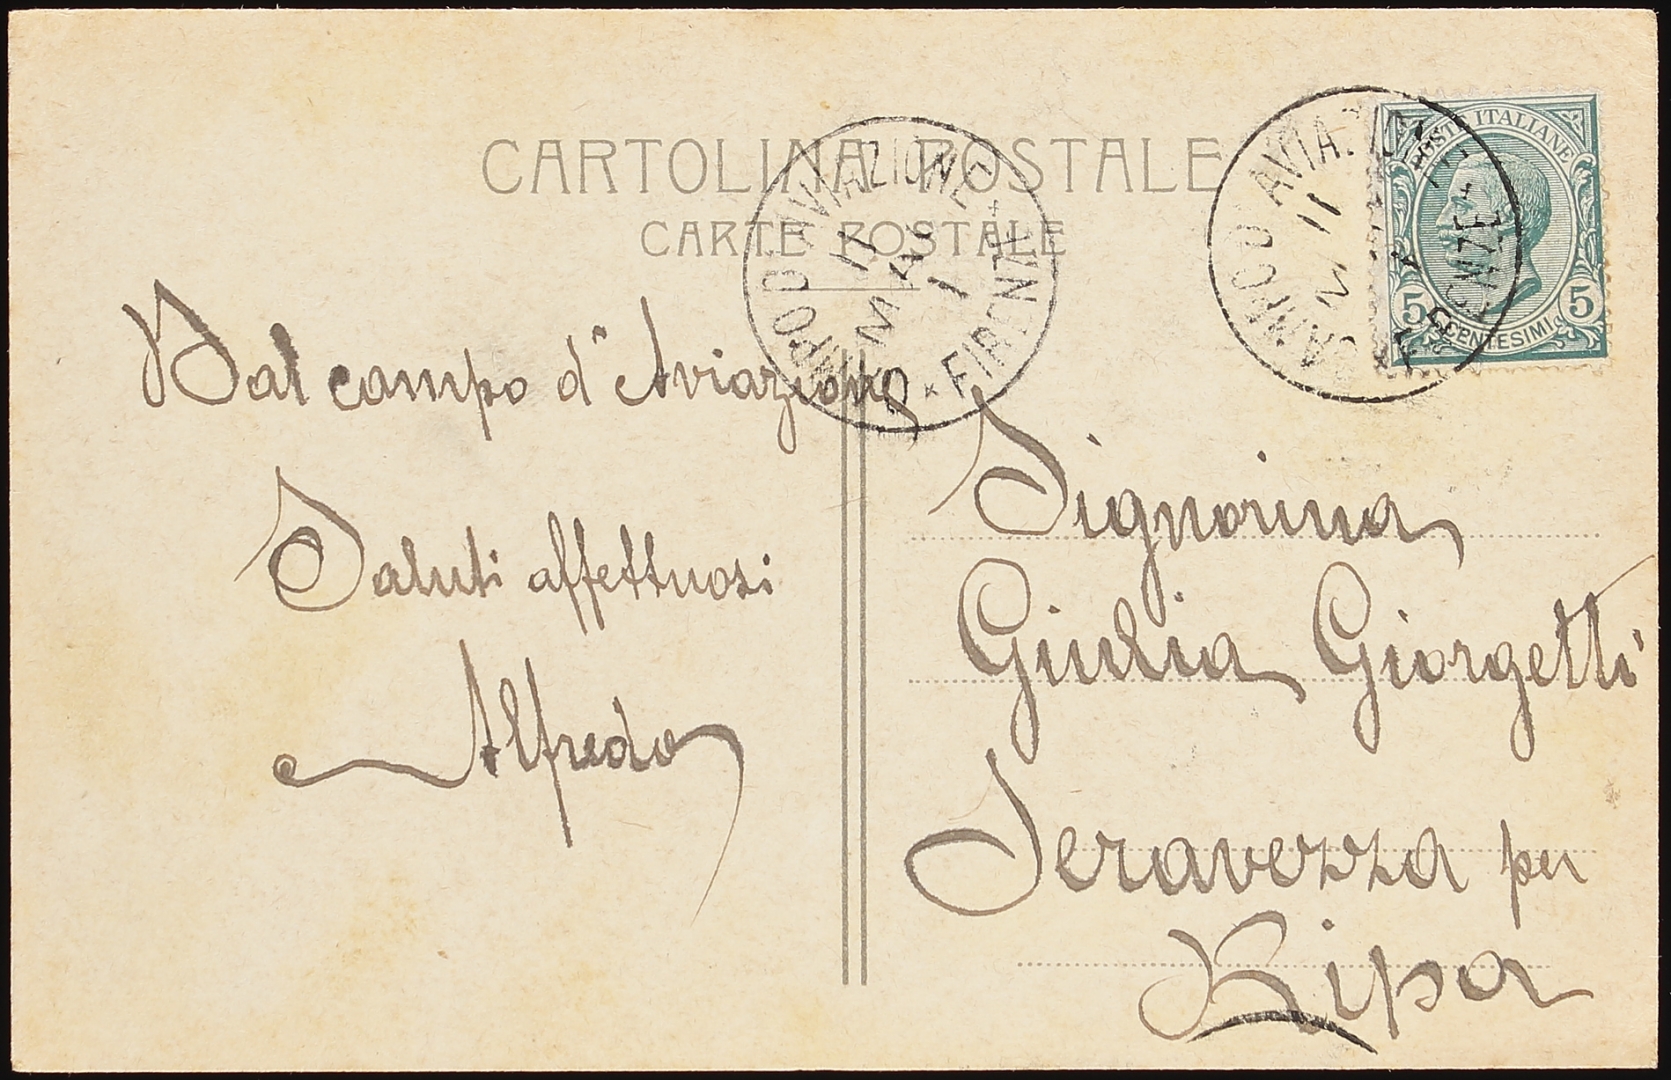 CARTOLINA POSTALE
CARTE POSTALE
CAMPO D'AVIAZIONE
11
MAG
11
* FIRENZE *
CAMPO D'AVIAZIO
11
FIRENZE
POSTE ITALIANE
5 5
CENTESIMI
Dal campo d'Aviazione
Saluti affettuosi
Alfredo
Signorina
Giulia Giorgetti
Seravezza per
Ripa